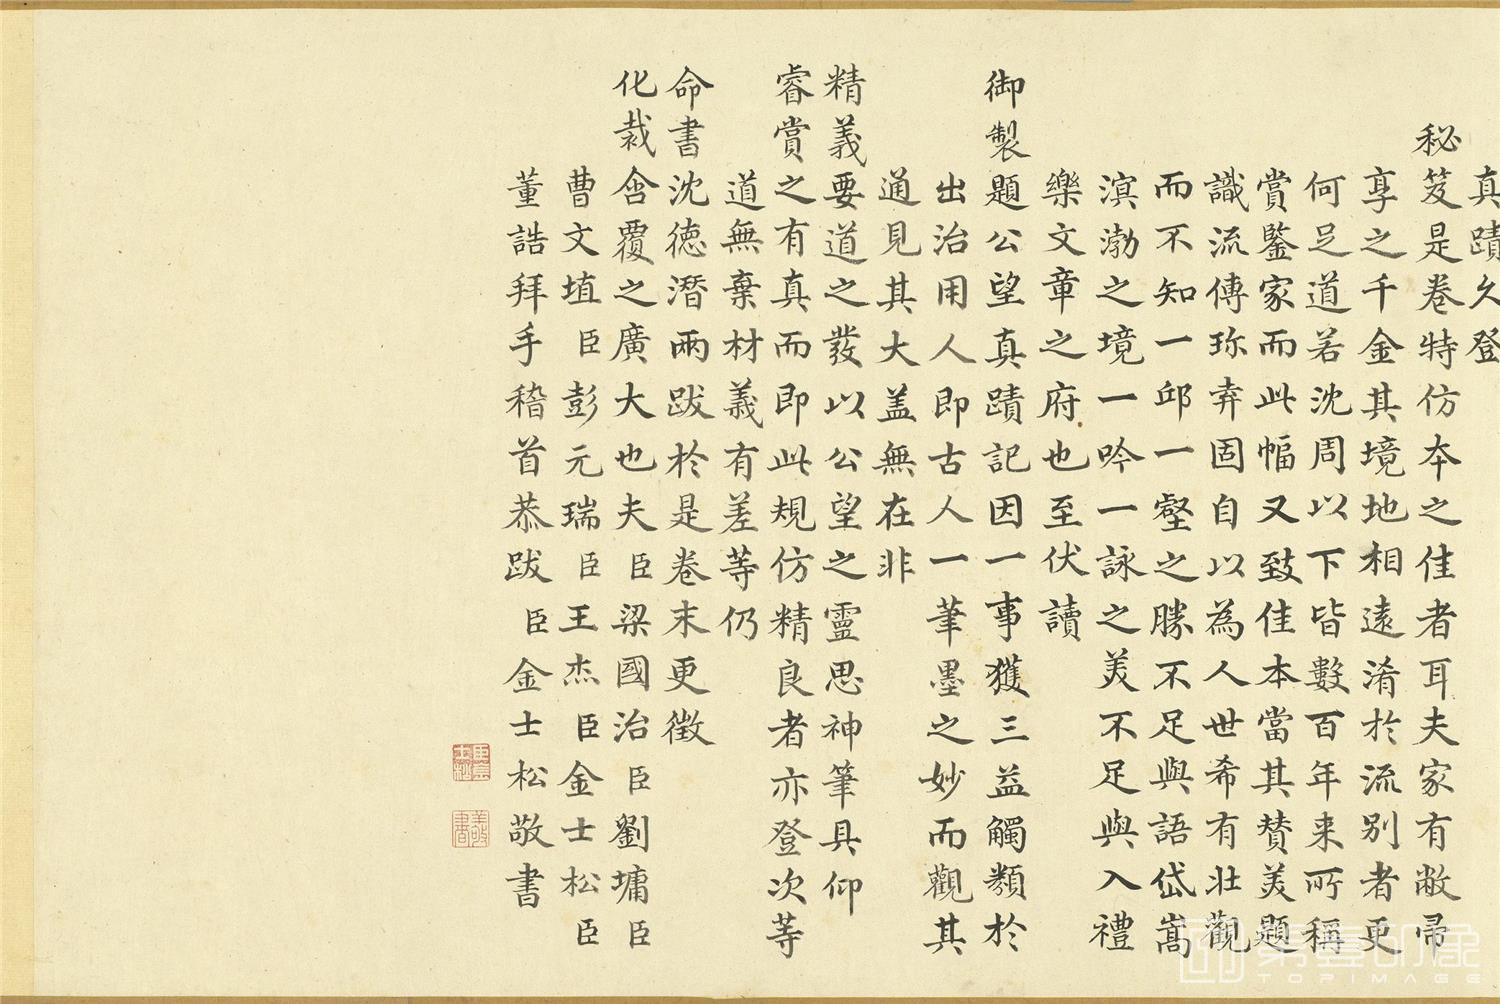 真蹟久登
秘笈是卷特仿本之佳者耳夫家有敝帚
享之千金其境地相遠淆於流别者更
何足道若沈周以下皆數百年来所稱
賞鑒家而此幅又致佳本當其賛美題
識流傳珎弆固自以為人世希有壯觀
而不知一邱一壑之勝不足與語岱嵩
溟渤之境一吟一詠之美不足與入禮
樂文章之府也至伏讀
御製題公望真蹟記因一事獲三益觸類於
出治用人即古人一筆墨之妙而觀其
通見其大盖無在非
精義要道之發以公望之靈思神筆具仰
睿賞之有真而即此規仿精良者亦登次等
道無棄材義有差等仍
命書沈德潛兩跋於是卷末更徵
化裁含覆之廣大也夫臣梁國治臣劉墉臣
曹文埴臣彭元瑞臣王杰臣金士松臣
董誥拜手稽首恭跋臣金士松敬書
第壹印象
TOPIMAGE